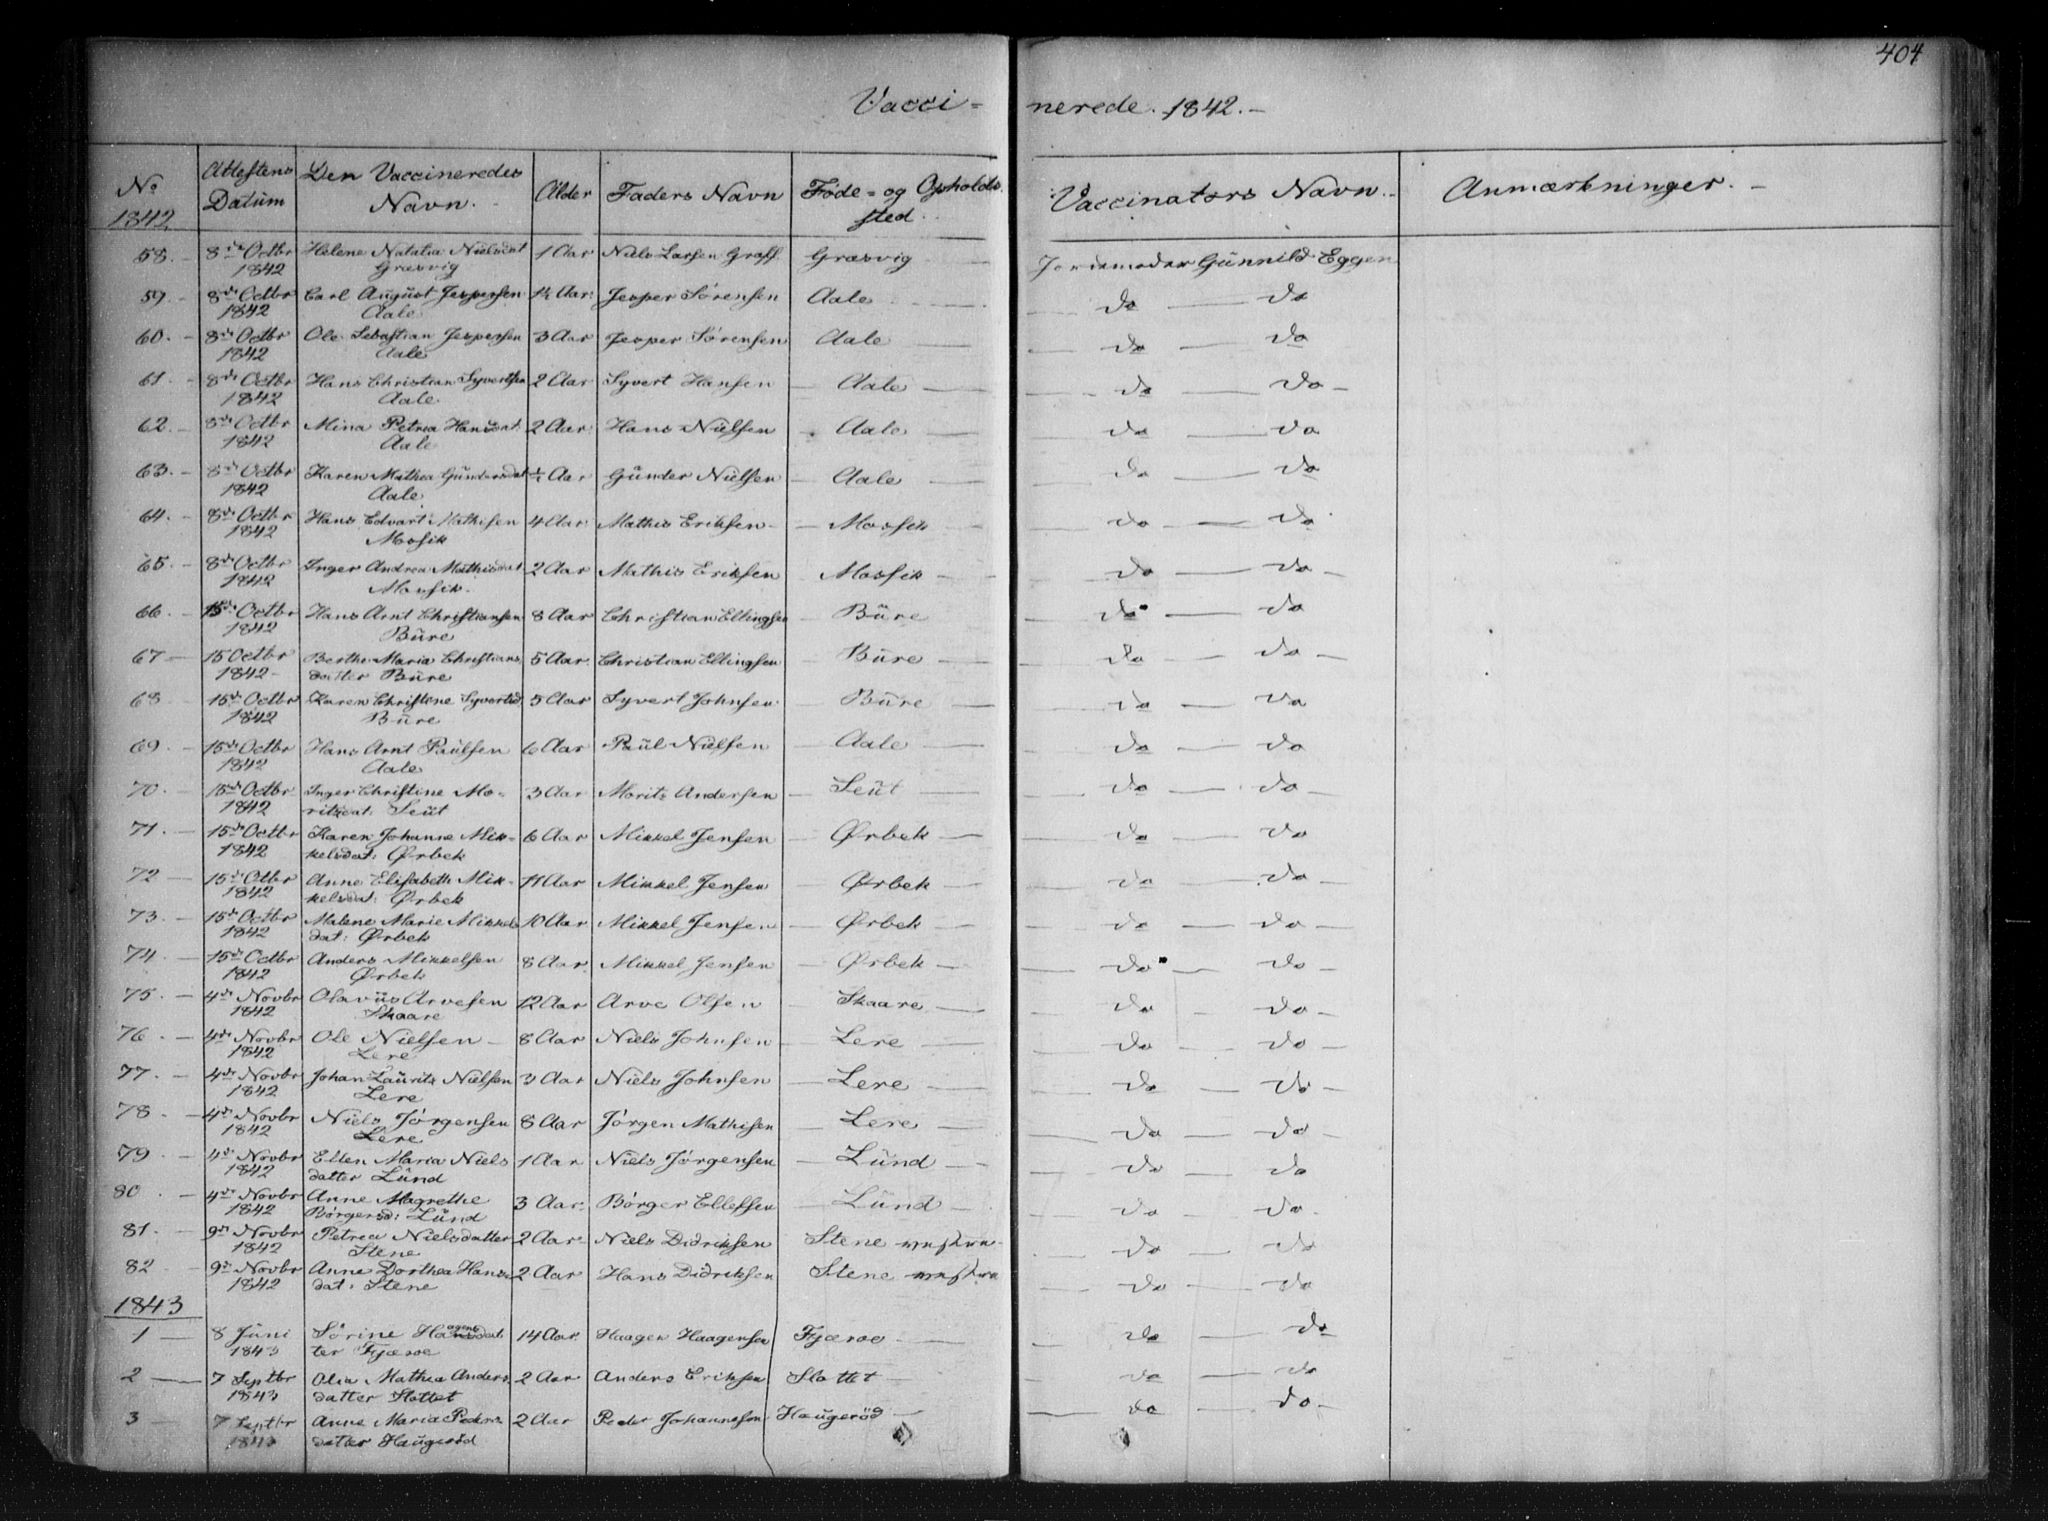 404
Vacci- nerede. 1842.-
No 1842 | Attestens Datum | Den Vaccineredes Navn. | Alder | Faders Navn | Føde- og Opholds sted. | Vaccinators Navn. | Anmærkninger.
58. 8de Octbr 1842 Helene Natalia Nielsdat Græsvig 1 Aar Niels Larsen Græsvig Jordemoder Günnild Eggen
59. 8de Octbr 1842 Carl August Jespersen Aale 1½ Aar Jesper Sørensen Aale do do
60. 8de Octbr 1842 Ole Sebastian Jespersen Aale 3 Aar Jesper Sørensen Aale do do
61. 8de Octbr 1842 Hans Christian Syvertsen Aale 2 Aar Syvert Hansen Aale do do
62. 8de Octbr 1842 Mina Petrea Hansdat: Aale 2 Aar Hans Nielsen Aale do do
63. 8de Octbr 1842 Karen Mathea Gündersdat Aale Aar Günder Nielsen Aale do do
64. 8de Octbr 1842 Hans Edvart Mathisen Mosfik 4 Aar Mathis Eriksen Mosfik do do
65. 8de Octbr 1842 Inger Andrea Mathisdat Mosfik 2 Aar Mathis Eriksen Mosfik do do
66. 15de Octbr 1842 Hans Arnt Christiansen Büre 8 Aar Christian Ellingsen Büre do do
67 15 Octbr 1842 Berthe Maria Christians datter Büre 5 Aar Christian Ellingsen Büre do do
68 15de Octbr 1842 Karen Christene Syvertsd Büre 5 Aar Syvert Johnsen Büre do do
69. 15de Octbr 1842 Hans Arnt Paulsen Aale 6 Aar Paül Nielsen Aale do do
70. 15de Octbr 1842 Inger Christine Mo- ritzdat: Leüt 3 Aar Morits Andersen Leüt do do
71. 15de Octbr 1842 Karen Johanne Mik- kelsdat: Ørbek 6 Aar Mikkel Jensen Ørbek do do
72 15de Otbr 1842 Anne Elisabeth Mik- kelsdat: Ørbek 11 Aar Mikkel Jensen Ørbek do do
73. 15de Octbr 1842 Malene Marie Mikkels dat: Ørbek 10 Aar Mikkel Jensen Ørbek do do
74. 15de Octbr 1842 Anders Mikkelsen Ørbek 8 Aar Mikkel Jensen Ørbek do do
75. 4de Novbr 1842 Olavüs Arvesen Skaare 12 Aar Arve Olsen Skaare do do
76. 4de Novbr 1842 Ole Nielsen Lere 8 Aar Niels Johnsen Lere do do
77. 4de Novbr 1842 Johan Laurits Nielsen Lere 3 Aar Niels Johnsen Lere do do
78. 4de Novbr 1842 Niels Jørgensen Lere 8 Aar Jørgen Mathisen Lere do do
79. 4de Novbr 1842 Ellen Maria Niels datter Lünd 1 Aar Niels Jørgensen Lünd do do
80. 4de Novbr 1842 Anne Magrethe Børgersd: Lünd 3 Aar Børger Ellefsen Lünd do do
81. 9de Novbr 1842 Petrea Nielsdatter Stene 2 Aar Niels Didriksen Stene do do
82 9de Novbr 1842 Anne Dorthea Hans dat: Stene 2 Aar Hans Didriksen Stene do do
1843
1 8 Juni 1843 Sørine Haagensdat ter Fjæroe 14 Aar Haagen Haagensen Fjæroe do do
2 7 Septbr 1843 Olia Mathea Anders datter Slottet 2 Aar Anders Eriksen Slottet do do
3 7 Septbr 1843 Anne Maria Peders datter Haugerød 2 Aar Peder Johannesen Haugerød do do